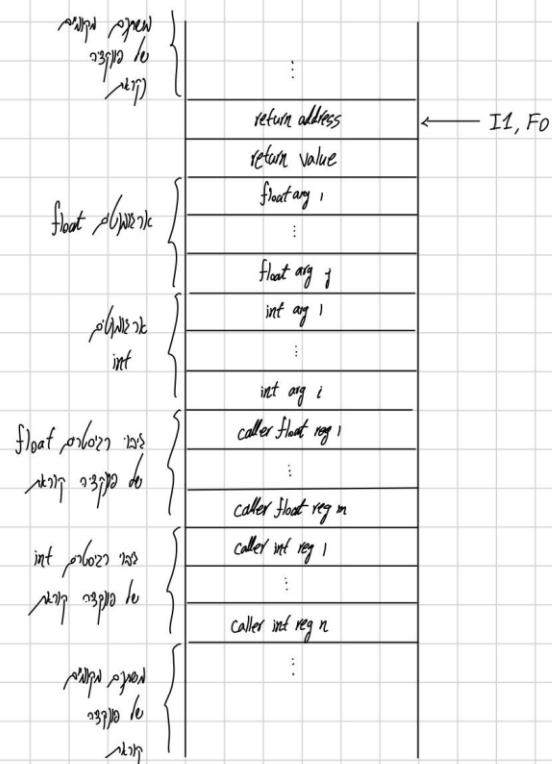 משתנים מקומיים
של פונקציה
נקראת
⋮
return address
I1, F0
return value
ארגומנטים float
float arg 1
⋮
float arg j
ארגומנטים
int
int arg 1
⋮
int arg i
גיבוי רגיסטרים float
של פונקציה קוראת
caller float reg 1
⋮
caller float reg m
גיבוי רגיסטרים int
של פונקציה קוראת
caller int reg 1
⋮
caller int reg n
משתנים מקומיים
של פונקציה
קוראת
⋮